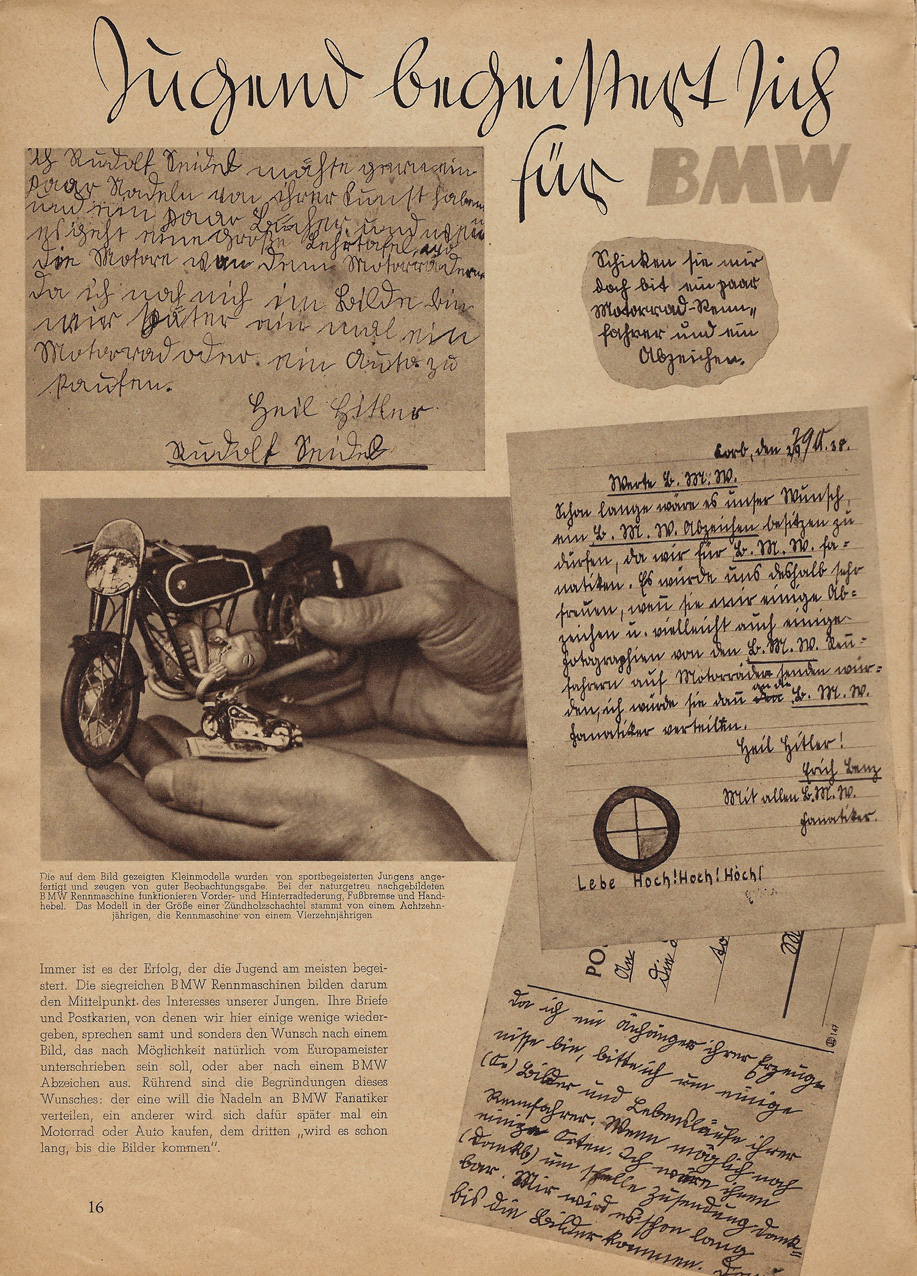 Jugend begeistert sich
für BMW
Ich Rudolf Seidel mähte gerne ein
paar Nadeln von ihrer Kunst haben
und ein paar Bücher und wen
es geht eine große Lehrtafel, auf
die Motore von dem Motorrädern
da ich noh nich im Bilde bin
mir später ein mal ein
Motorrad oder ein Auto zu
kaufen.
Heil Hitler
Rudolf Seidel
Schicken sie mir
doch bit ein paar
Motorrad-Renn-
fahrer und ein
Abzeichen.
Lorb, den
Werte B. M. W.
Schon lange wäre es unser Wunsch,
ein B. M. W. Abzeichen besitzen zu
dürfen, da wir für B. M. W. fa-
natiken. Es würde uns deshalb sehr
freuen, wen sie mir einige Ab-
zeichen u. vielleicht auch einige
Fotographien von den B. M. W. Ren-
fahrern auf Motorräder senden wür-
den, ich würde sie dan an die B. M. W.
Fanatiker verteilen.
Heil Hitler!
Erich Benz
Mit allen B. M. W.
Fanatiker.
Lebe Hoch! Hoch! Höch!
Die auf dem Bild gezeigten Kleinmodelle wurden von sportbegeisterten Jungens ange-
fertigt und zeugen von guter Beobachtungsgabe. Bei der naturgetreu nachgebildeten
BMW Rennmaschine funktionieren Vorder- und Hinterradfederung, Fußbremse und Hand-
hebel. Das Modell in der Größe einer Zündholzschachtel stammt von einem Achtzehn-
jährigen, die Rennmaschine von einem Vierzehnjährigen
Immer ist es der Erfolg, der die Jugend am meisten begei-
stert. Die siegreichen BMW Rennmaschinen bilden darum
den Mittelpunkt des Interesses unserer Jungen. Ihre Briefe
und Postkarten, von denen wir hier einige wenige wieder-
geben, sprechen samt und sonders den Wunsch nach einem
Bild, das nach Möglichkeit natürlich vom Europameister
unterschrieben sein soll, oder aber nach einem BMW
Abzeichen aus. Rührend sind die Begründungen dieses
Wunsches: der eine will die Nadeln an BMW Fanatiker
verteilen, ein anderer wird sich dafür später mal ein
Motorrad oder Auto kaufen, dem dritten „wird es schon
lang, bis die Bilder kommen".
PO
An
Die
Da ich ein Anhänger ihrer Erzeug-
nisse bin, bitte ich um einige
Bilder und Lebensläufe ihrer
Rennfahrer. Wenn möglich noch
einige Orten. Ich wäre ihnen
(dankb) um schnelle Zusendung dank-
bar. Mir wird es schon lang
bis die Bilder kommen.
16